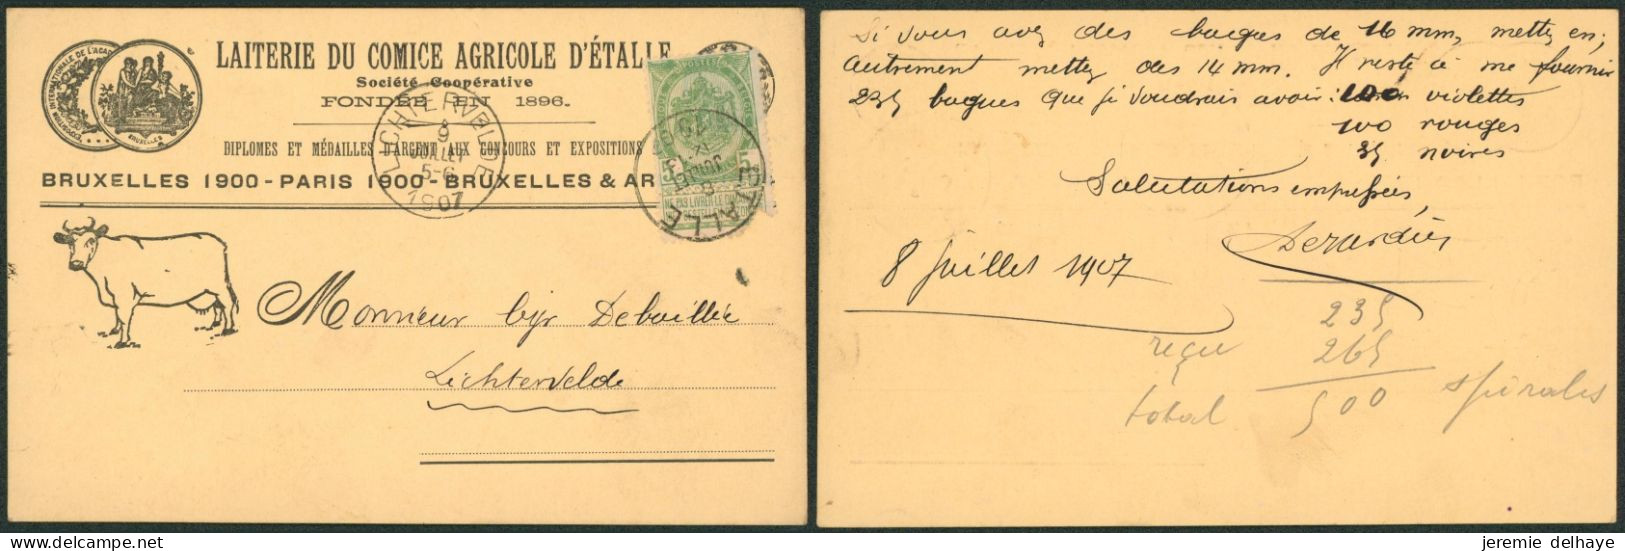 LAITERIE DU COMICE AGRICOLE D'ÉTALLE
Société Coopérative
FONDÉE EN 1896.
DIPLOMES ET MÉDAILLES D'ARGENT AUX CONCOURS ET EXPOSITIONS
BRUXELLES 1900 - PARIS 1900 - BRUXELLES & AR
BRUXELLES
LICHTERVELDE
9
JUILLET
5-6
1907
POSTES
5
5
NE PAS LIVRER LE DI
ETALLE
8
Monsieur Debaillie
Lichtervelde
Si vous avez des bagues de 16 mm, mettez en;
autrement mettez des 14 mm. Il reste à me fournir
235 bagues que je voudrais avoir: 100 violettes
100 rouges
35 noires
Salutations empressées,
8 Juillet 1907
235
reçu 265
total 500 spirales
jeremie delhaye